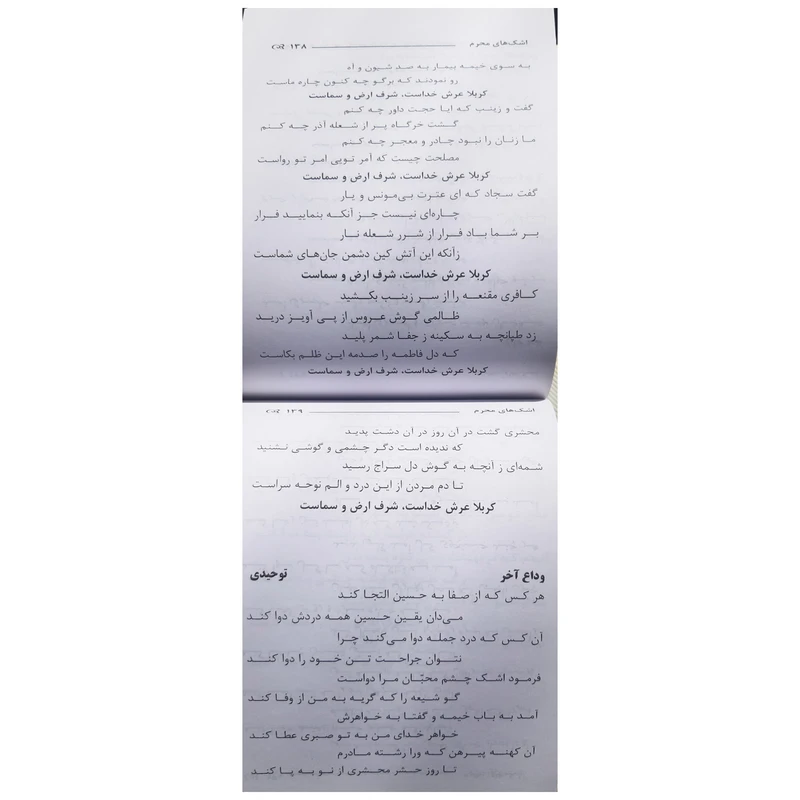 اشک‌های محرم ۱۳۸
به سوی خیمه بیمار به صد شیون و آه
رو نمودند که برگو چه کنون چاره ماست
کربلا عرش خداست، شرف ارض و سماست
گفت و زینب که ایا حجت داور چه کنم
گشت خرگاه پر از شعله آذر چه کنم
ما زنان را نبود چادر و معجر چه کنم
مصلحت چیست که آمر تویی امر تو رواست
کربلا عرش خداست، شرف ارض و سماست
گفت سجاد که ای عترت بی‌مونس و یار
چاره‌ای نیست جز آنکه بنمایید فرار
بر شما باد فرار از شرر شعله نار
زآنکه این آتش کین دشمن جان‌های شماست
کربلا عرش خداست، شرف ارض و سماست
کافری مقنعه را از سر زینب بکشید
ظالمی گوش عروس از پی آویز درید
زد طبانچه به سکینه ز جفا شمر پلید
که دل فاطمه را صدمه این ظلم بکاست
کربلا عرش خداست، شرف ارض و سماست
اشک‌های محرم ۱۳۹
محشری گشت در آن روز در آن دشت پدید
که ندیده است دگر چشمی و گوشی نشنید
شمه‌ای ز آنچه به گوش دل سراج رسید
تا دم مردن از این درد و الم نوحه سراست
کربلا عرش خداست، شرف ارض و سماست
وداع آخر توحیدی
هر کس که از صفا به حسین التجا کند
می‌دان یقین حسین همه دردش دوا کند
آن کس که درد جمله دوا می‌کند چرا
نتوان جراحت تن خود را دوا کند
فرمود اشک چشم محبّان مرا دواست
گو شیعه را که گریه به من از وفا کند
آمد به باب خیمه و گفتا به خواهرش
خواهر خدای من به تو صبری عطا کند
آن کهنه پیرهن که ورا رشته مادرم
تا روز حشر محشری از نو به پا کند